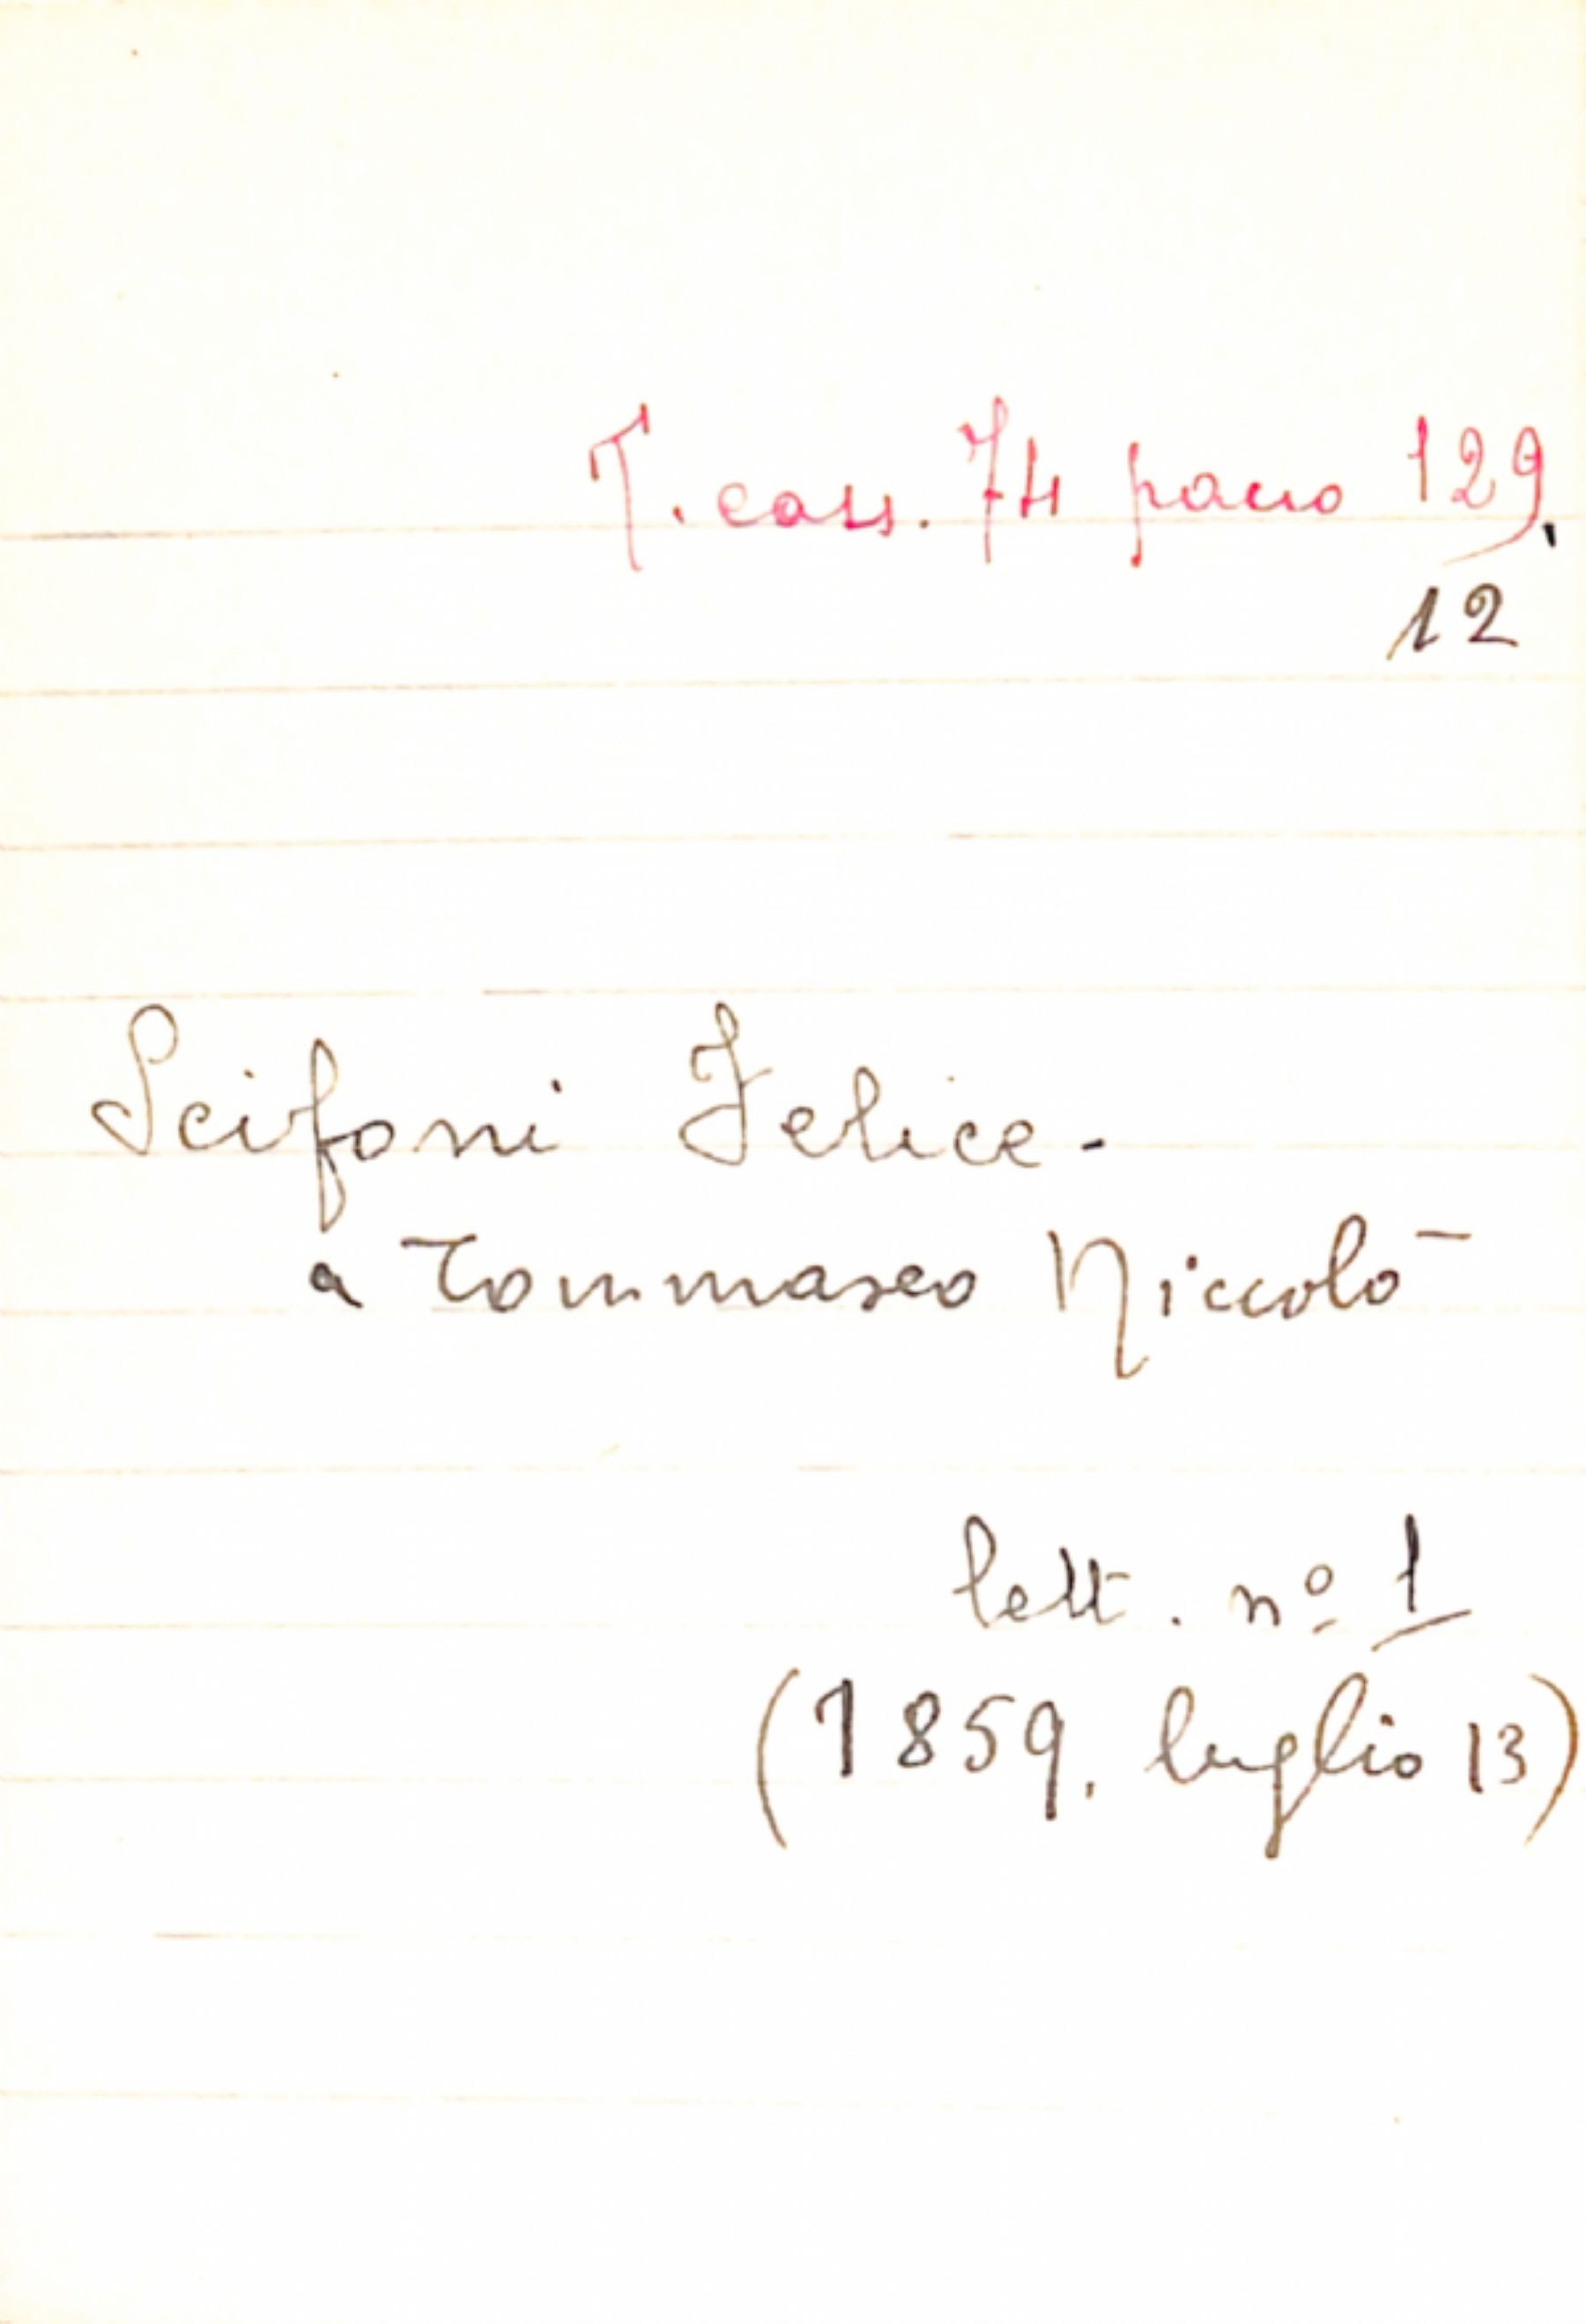 T. cass. 74 pacco 129.
12
Scifoni Felice -
a Tommaseo Niccolò
lett. nº 1
(1859. luglio 13)